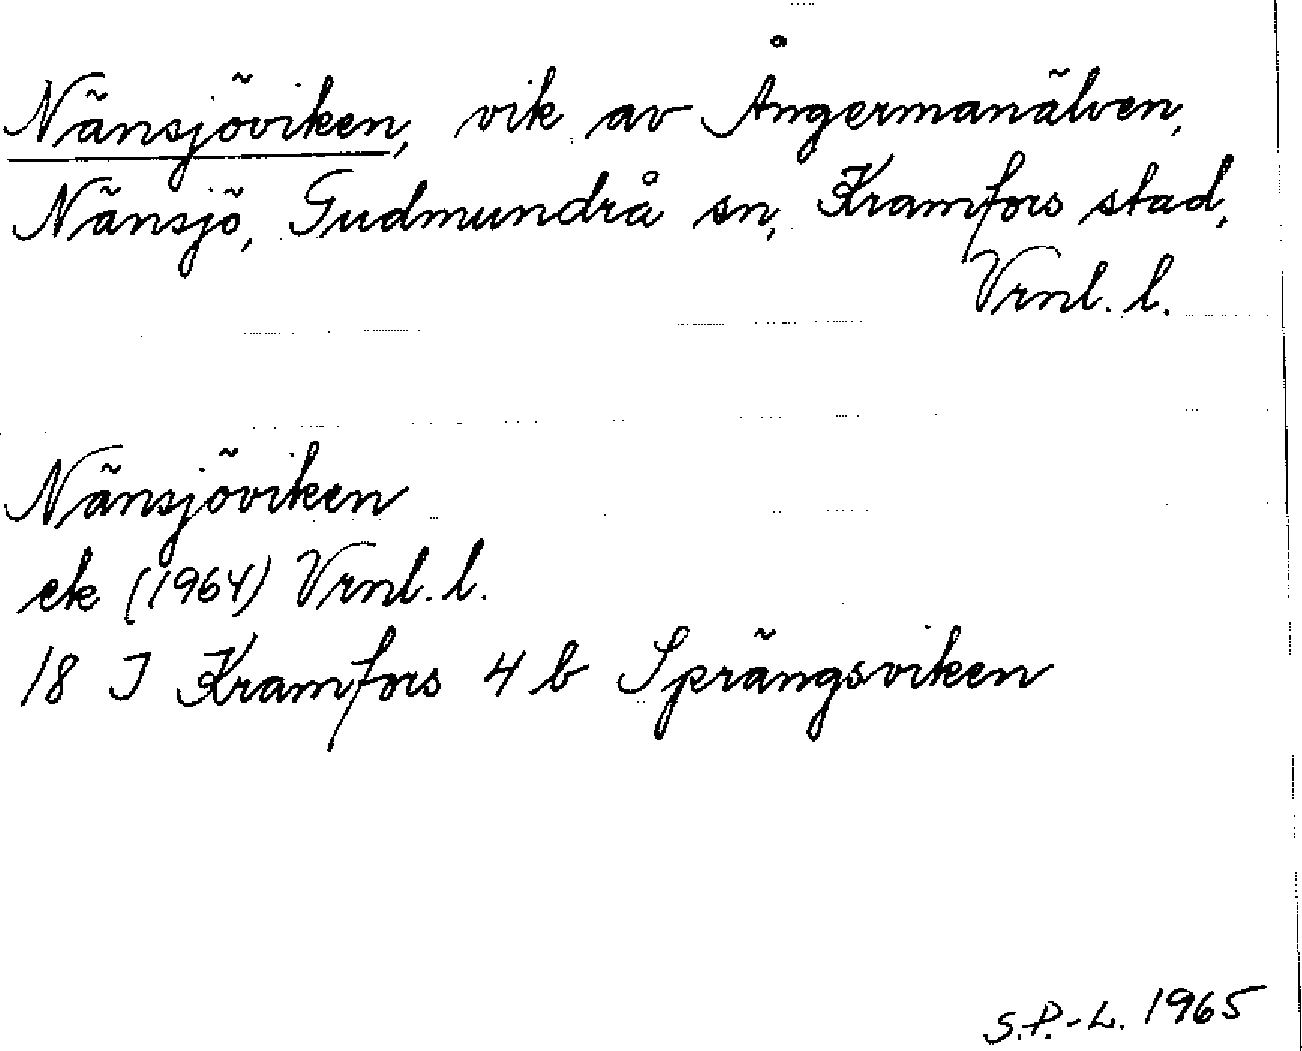 Nänsjöviken, vik av Ångermanälven,
Nänsjö, Gudmundrå sn, Kramfors stad,
Vrnl. l.
Nänsjöviken
ek (1964) Vrnl. l.
18 J Kramfors 4 b Sprängsviken
S.P.-L. 1965